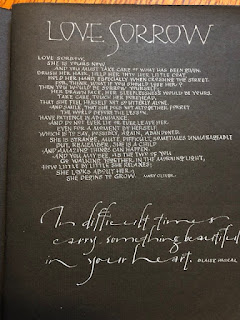 LOVE SORROW
LOVE SORROW.
SHE IS YOURS NOW,
AND YOU MUST TAKE CARE OF WHAT HAS BEEN GIVEN.
BRUSH HER HAIR, HELP HER INTO HER LITTLE COAT,
HOLD HER HAND, ESPECIALLY WHEN CROSSING THE STREET.
FOR, THINK, WHAT IF YOU SHOULD LOSE HER?
THEN YOU WOULD BE SORROW YOURSELF;
HER DRAWN FACE, HER SLEEPLESSNESS WOULD BE YOURS.
TAKE CARE, TOUCH HER FOREHEAD
THAT SHE FEEL HERSELF NOT SO UTTERLY ALONE.
AND SMILE, THAT SHE DOES NOT ALTOGETHER FORGET
THE WORLD BEFORE THE LESSON.
HAVE PATIENCE IN ABUNDANCE.
AND DO NOT EVER LIE OR EVER LEAVE HER
EVEN FOR A MOMENT BY HERSELF
WHICH IS TO SAY, POSSIBLY, AGAIN, ABANDONED.
SHE IS STRANGE, MUTE, DIFFICULT, SOMETIMES UNMANAGEABLE
BUT, REMEMBER, SHE IS A CHILD.
AND AMAZING THINGS CAN HAPPEN.
AND YOU MAY SEE, AS THE TWO OF YOU
GO WALKING TOGETHER IN THE MORNING LIGHT,
HOW LITTLE BY LITTLE SHE RELAXES;
SHE LOOKS ABOUT HER;
SHE BEGINS TO GROW. MARY OLIVER
In difficult times
carry something beautiful
in your heart. BLAISE PASCAL